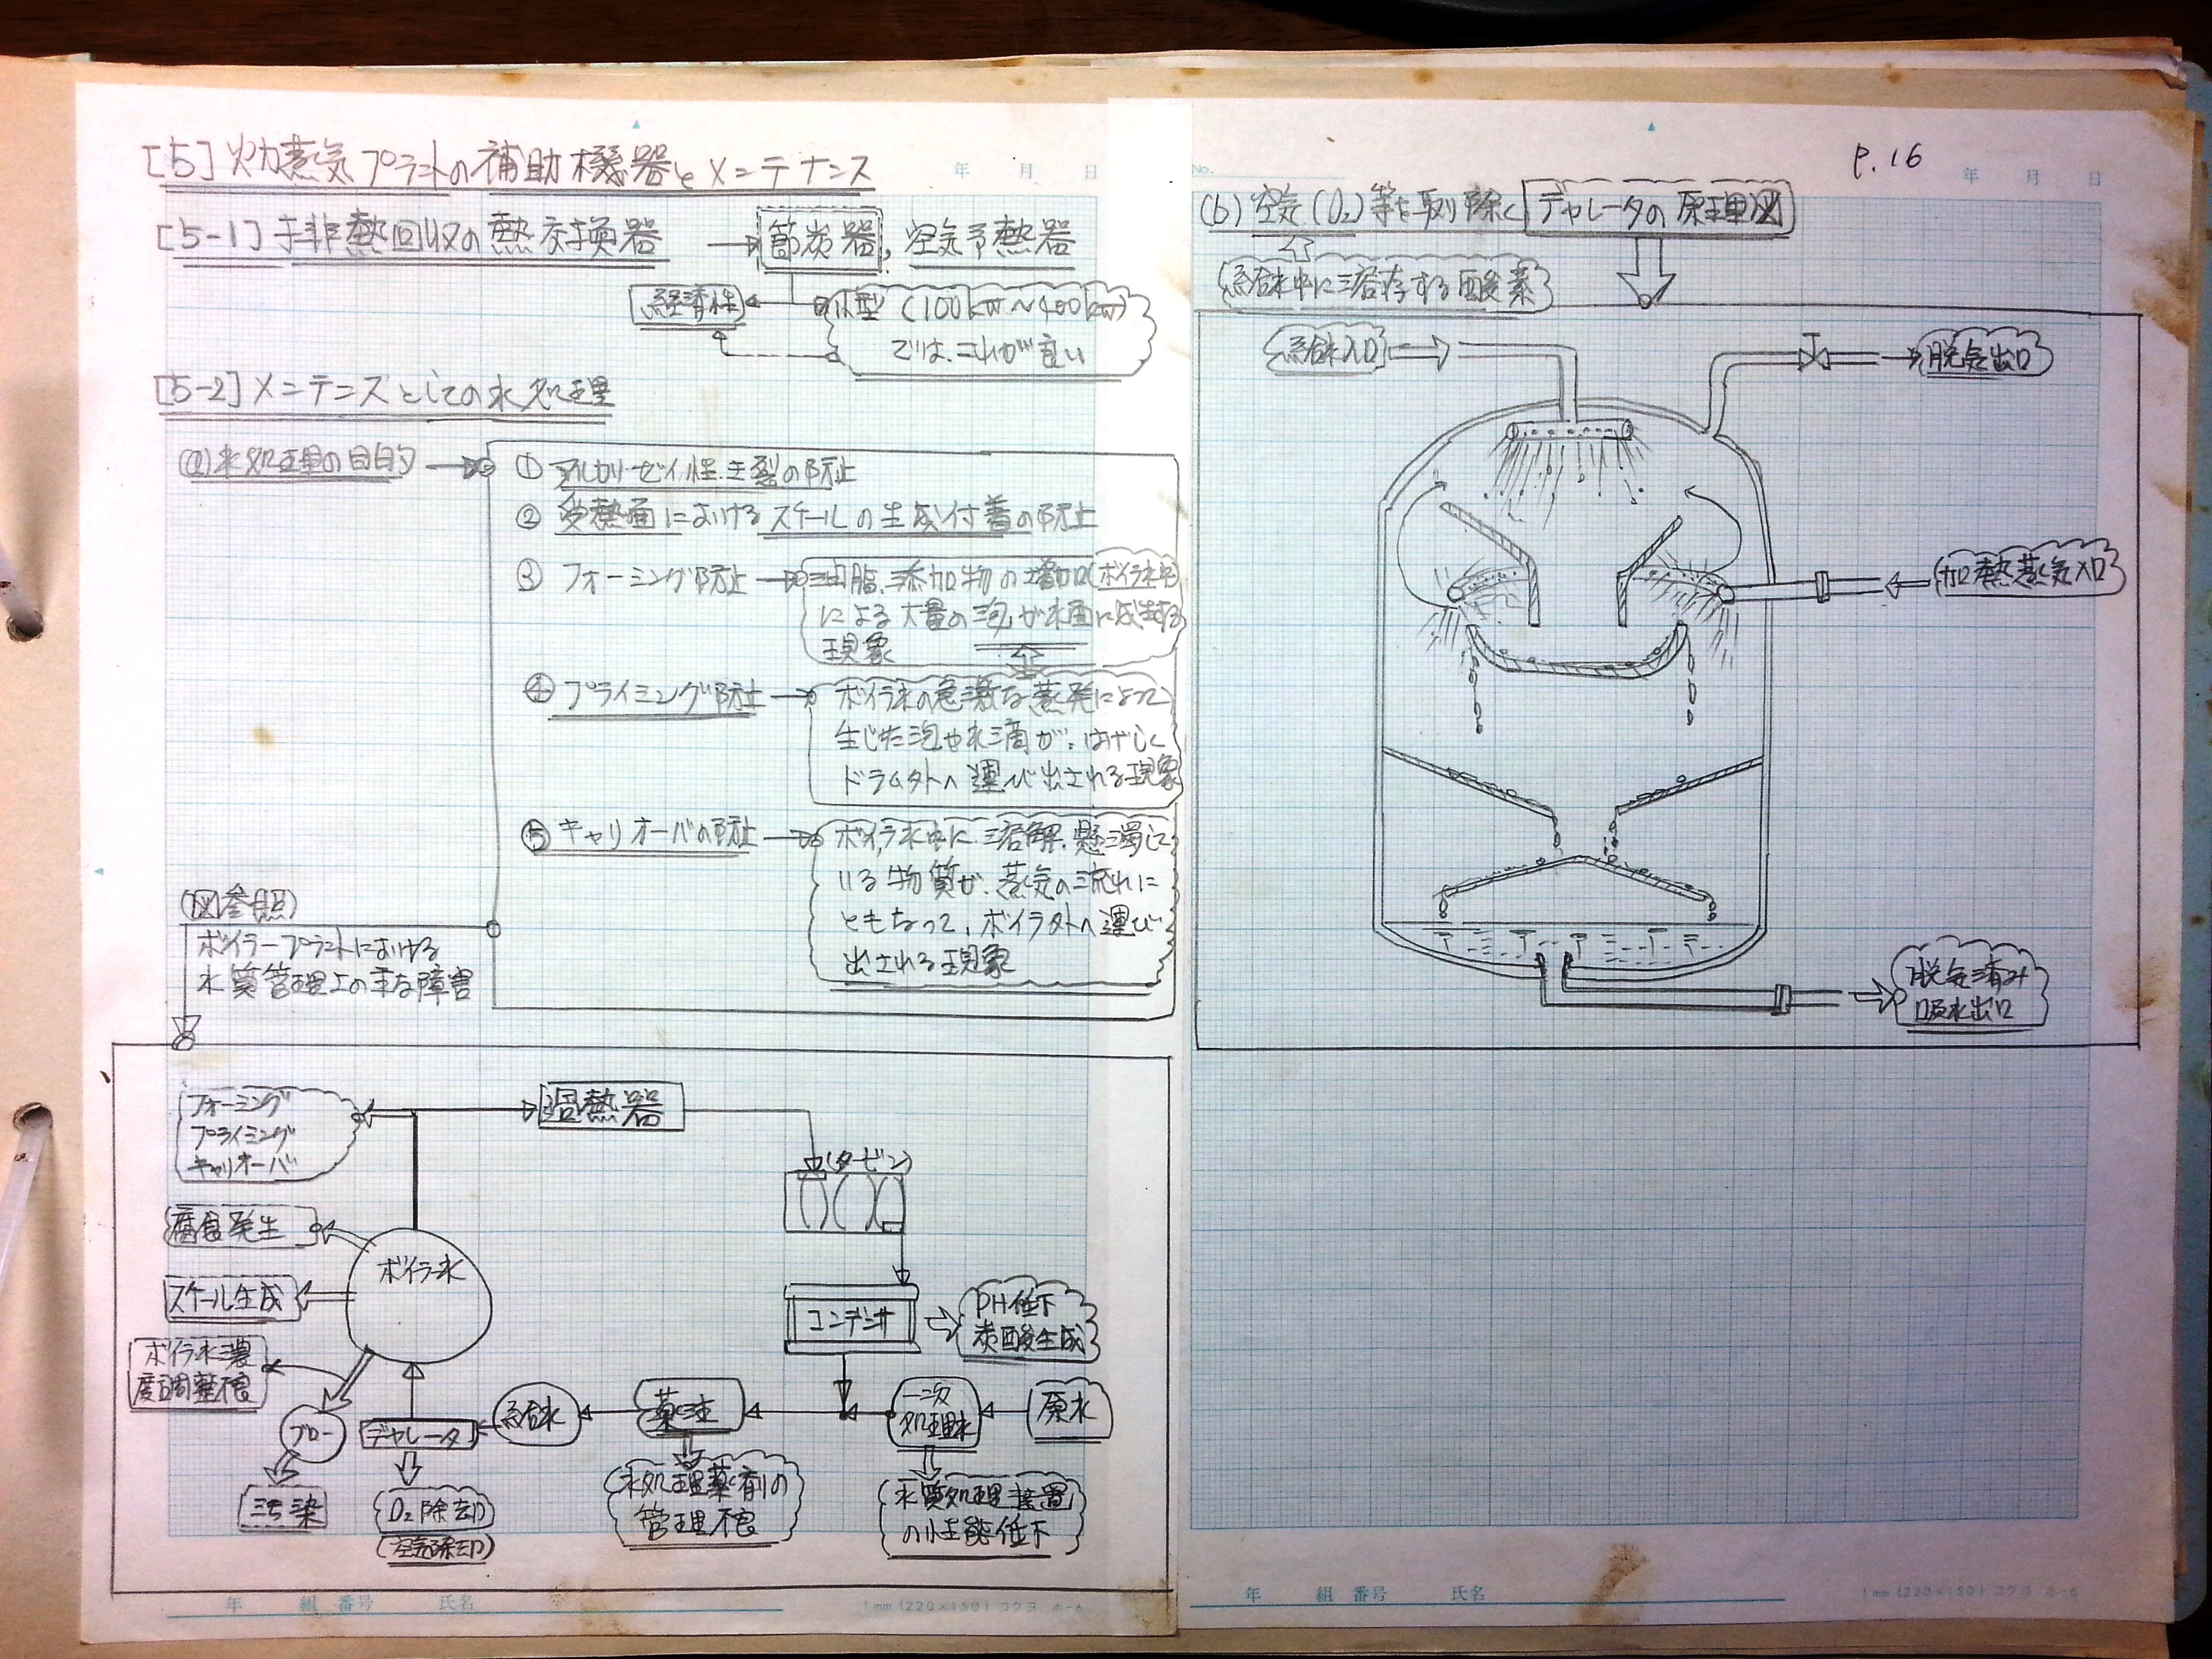 [5] 火力蒸気プラントの補助機器とメンテナンス
[5-1] 排熱回収の熱交換器 → 節炭器, 空気予熱器
経済性
小型 (100kw～400kw)
では、これが良い
[5-2] メンテナンスとしての水処理
(a) 水処理の目的
① アルカリ・ゼイ性・き裂の防止
② 受熱面におけるスケールの生成付着の防止
③ フォーミング防止
油脂、添加物の増加(ボイラ水中)
による大量の泡が水面に発生する
現象
④ プライミング防止
ボイラ水の急激な蒸発によって
生じた泡や水滴が、はげしく
ドラム外へ運び出される現象
⑤ キャリオーバの防止
ボイラ水中に溶解、懸濁して
いる物質が、蒸気の流れに
ともなって、ボイラ外へ運び
出される現象
(図参照)
ボイラープラントにおける
水質管理上の主な障害
フォーミング
プライミング
キャリオーバ
過熱器
(タービン)
腐食発生
ボイラ水
スケール生成
コンデンサ
PH低下
炭酸生成
ボイラ水濃
度調整不良
ブロー
デャレータ
給水
薬注
一次
処理水
原水
汚染
O₂除却
(空気除却)
水処理薬剤の
管理不良
水質処理装置
の性能低下
年 組 番号 氏名
1mm (220×150) コクヨ ホ-6
年 月 日
P.16
No.
年 月 日
(b) 空気(O₂)等を取り除く デャレータの原理図
給水中に溶存する酸素
給水入口
脱気出口
加熱蒸気入口
脱気済み
吸水出口
年 組 番号 氏名
1mm (220×150) コクヨ ホ-6